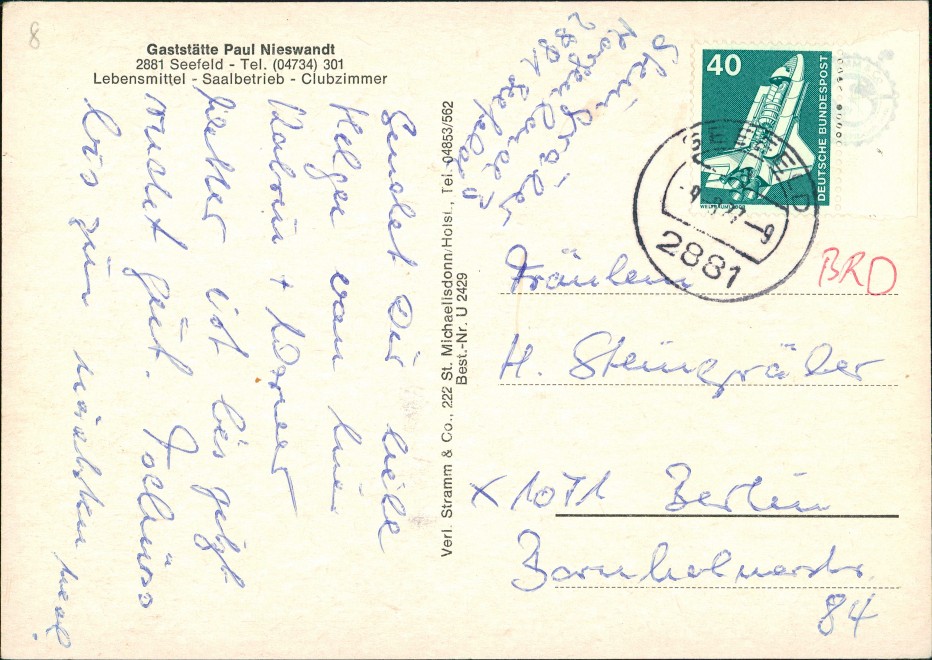 8
Gaststätte Paul Nieswandt
2881 Seefeld - Tel. (04734) 301
Lebensmittel - Saalbetrieb - Clubzimmer
Sendet Dir liebe
Helga von hier
+ Werner
Wetter ist bis jetzt
nicht gut. Tschüss
bis zum nächsten mal!
Verl. Stramm & Co., 222 St. Michaelisdonn/Holst., Tel. 04853/562
Best.-Nr. U 2429
2881 Seefeld
40
DEUTSCHE BUNDESPOST
SEEFELD
2881
BRD
Fräulein
H. Steingräber
X 1071 Berlin
Bornholmerstr.
84